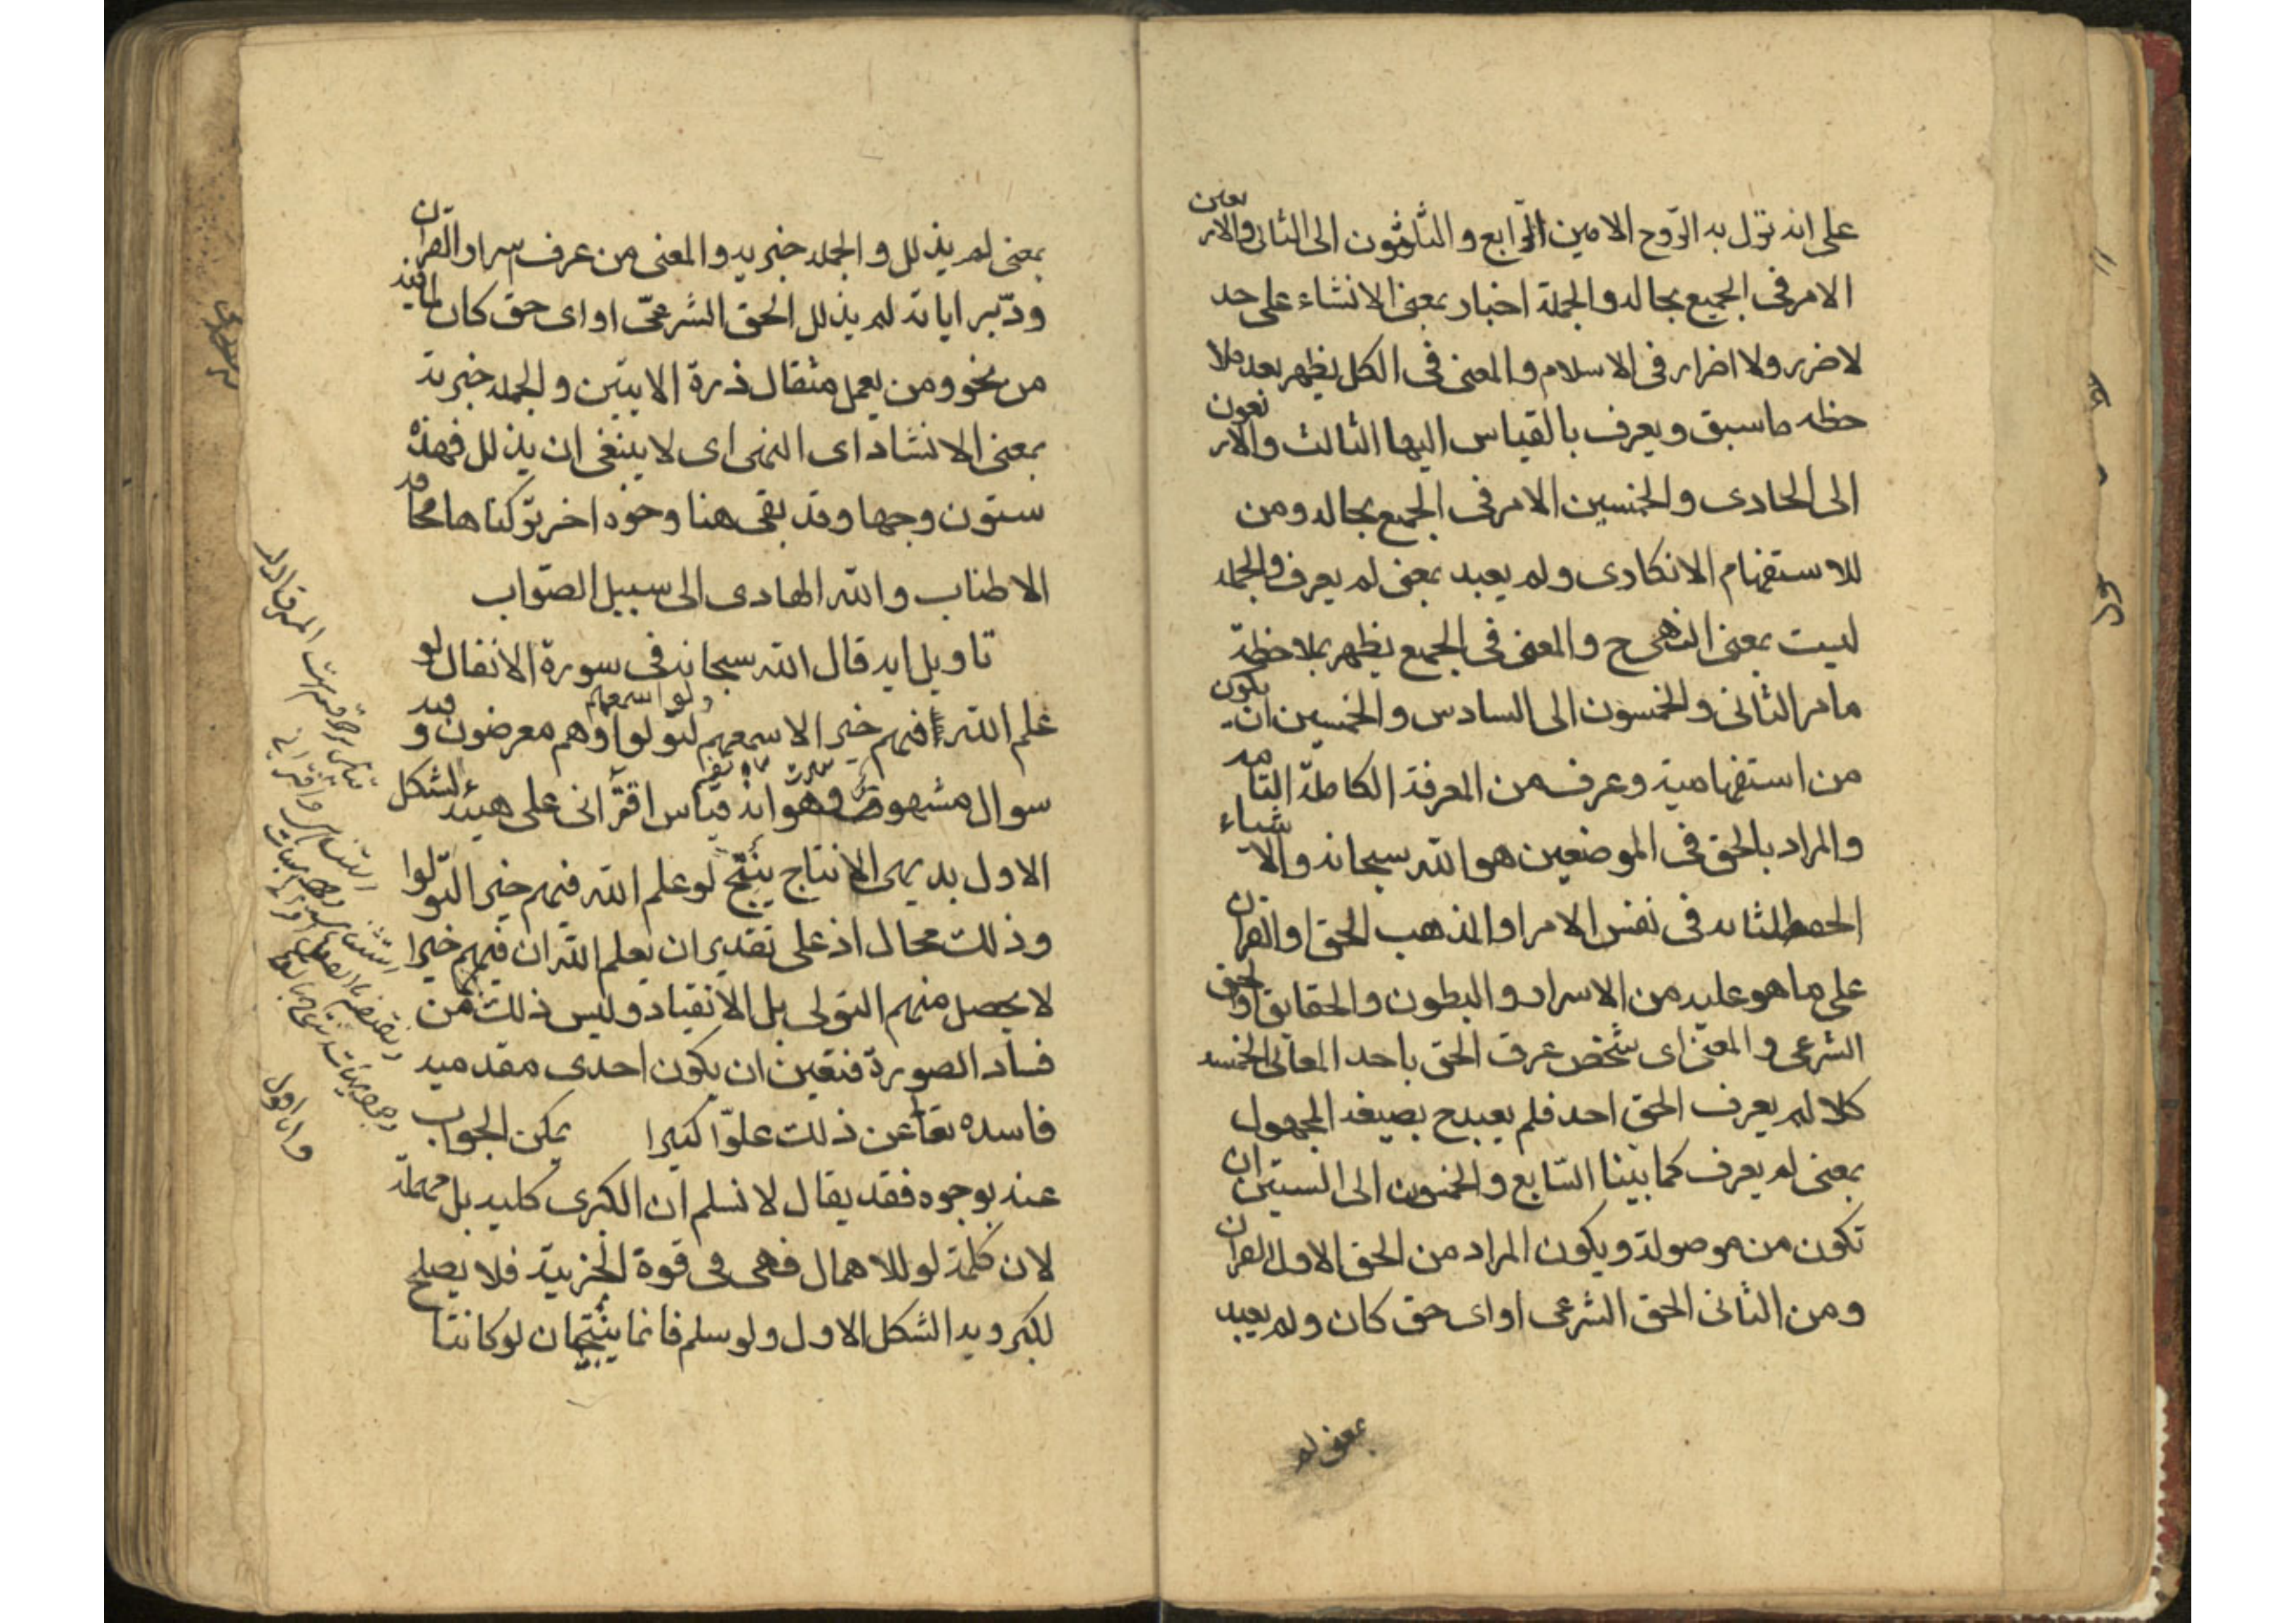 على انه نزل به الرّوح الامين الرّابع والثّلثون الى الثانى والاربعين
الامر فى الجميع بحاله والجملة اخبار بمعنى الانشاء على حد
لا ضرر ولا اضرار فى الاسلام والمعنى فى الكل يظهر بعد ملا
حظه ما سبق ويعرف بالقياس اليها الثالث والاربعون
الى الحادى والخمسين الامر فى الجميع بحاله ومن
للاستفهام الانكارى ولم يعبد بمعنى لم يعرف والجمله
ليست بمعنى النهى ح والمعنى فى الجميع يظهر بملاحظة
ما مر الثانى والخمسون الى السادس والخمسين ان يكون
من استفهامية وعرف من المعرفة الكاملة التامه
والمراد بالحق فى الموضعين هو الله سبحانه والاشياء
فى نفس الامر او المذهب الحق او القران
على ما هو عليه من الاسرار والبطون والحقايق او الحق
الشرعى والمعنى اى شخص عرف الحق باحد المعانى الخمسه
كلا لم يعرف الحق احد فلم يعبد ح بصيغه المجهول
بمعنى لم يعرف كما بينا السّابع والخمسون الى الستين ان
تكون من موصولة ويكون المراد من الحق الاول القران
ومن الثانى الحق الشرعى او اى حق كان ولم يعبد
بمعنى لم
بمعنى لم يذلل والجمله خبريه والمعنى من عرف اسرار القران
ودبّر اياته لم يذلل الحق الشرعىّ او اى حق كان لما فيه
من نحو ومن يعمل مثقال ذرة الايتين والجمله خبرية
بمعنى الانشاء اى النهى اى لا ينبغى ان يذلل فهذه
ستون وجها وقد بقى هنا وجوه اخر تركناها مخافه
الاطناب والله الهادى الى سبيل الصّواب
تاويل ايه قال الله سبحانه فى سورة الانفال لو
علم الله فيهم خيرا لاسمعهم ولو اسمعهم لتولوا وهم معرضون وفيه
سوال مشهور وهو انه قياس اقترانى على هيئه الشكل
الاول بديهى الانتاج ينتج لو علم الله فيهم خيرا لتولّوا
وذلك محال اذ على تقدير ان يعلم الله ان فيهم خيرا
لا يحصل منهم التولى بل الانقياد وليس ذلك من
فساد الصورة فتعين ان يكون احدى مقدميه
فاسده تعا عن ذلك علوّا كبيرا يمكن الجواب
عنه بوجوه فقد يقال لا نسلم ان الكبرى كليه بل مهملة
لان كلمة لو للاهمال فهى فى قوة الجزيية فلا يصلح
لكبرويه الشكل الاول ولو سلم فانما ينتجان لو كانتا
وانا اقول